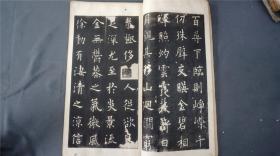 百尋下臨則崢嶸千
仞珠壁交暎金碧相
暉照灼雲霞蔽虧日
月觀其移山迴澗窮
泰極侈人從欲良
足深尤至於炎景流
金無鬱蒸之氣微風
徐動有淒清之涼信